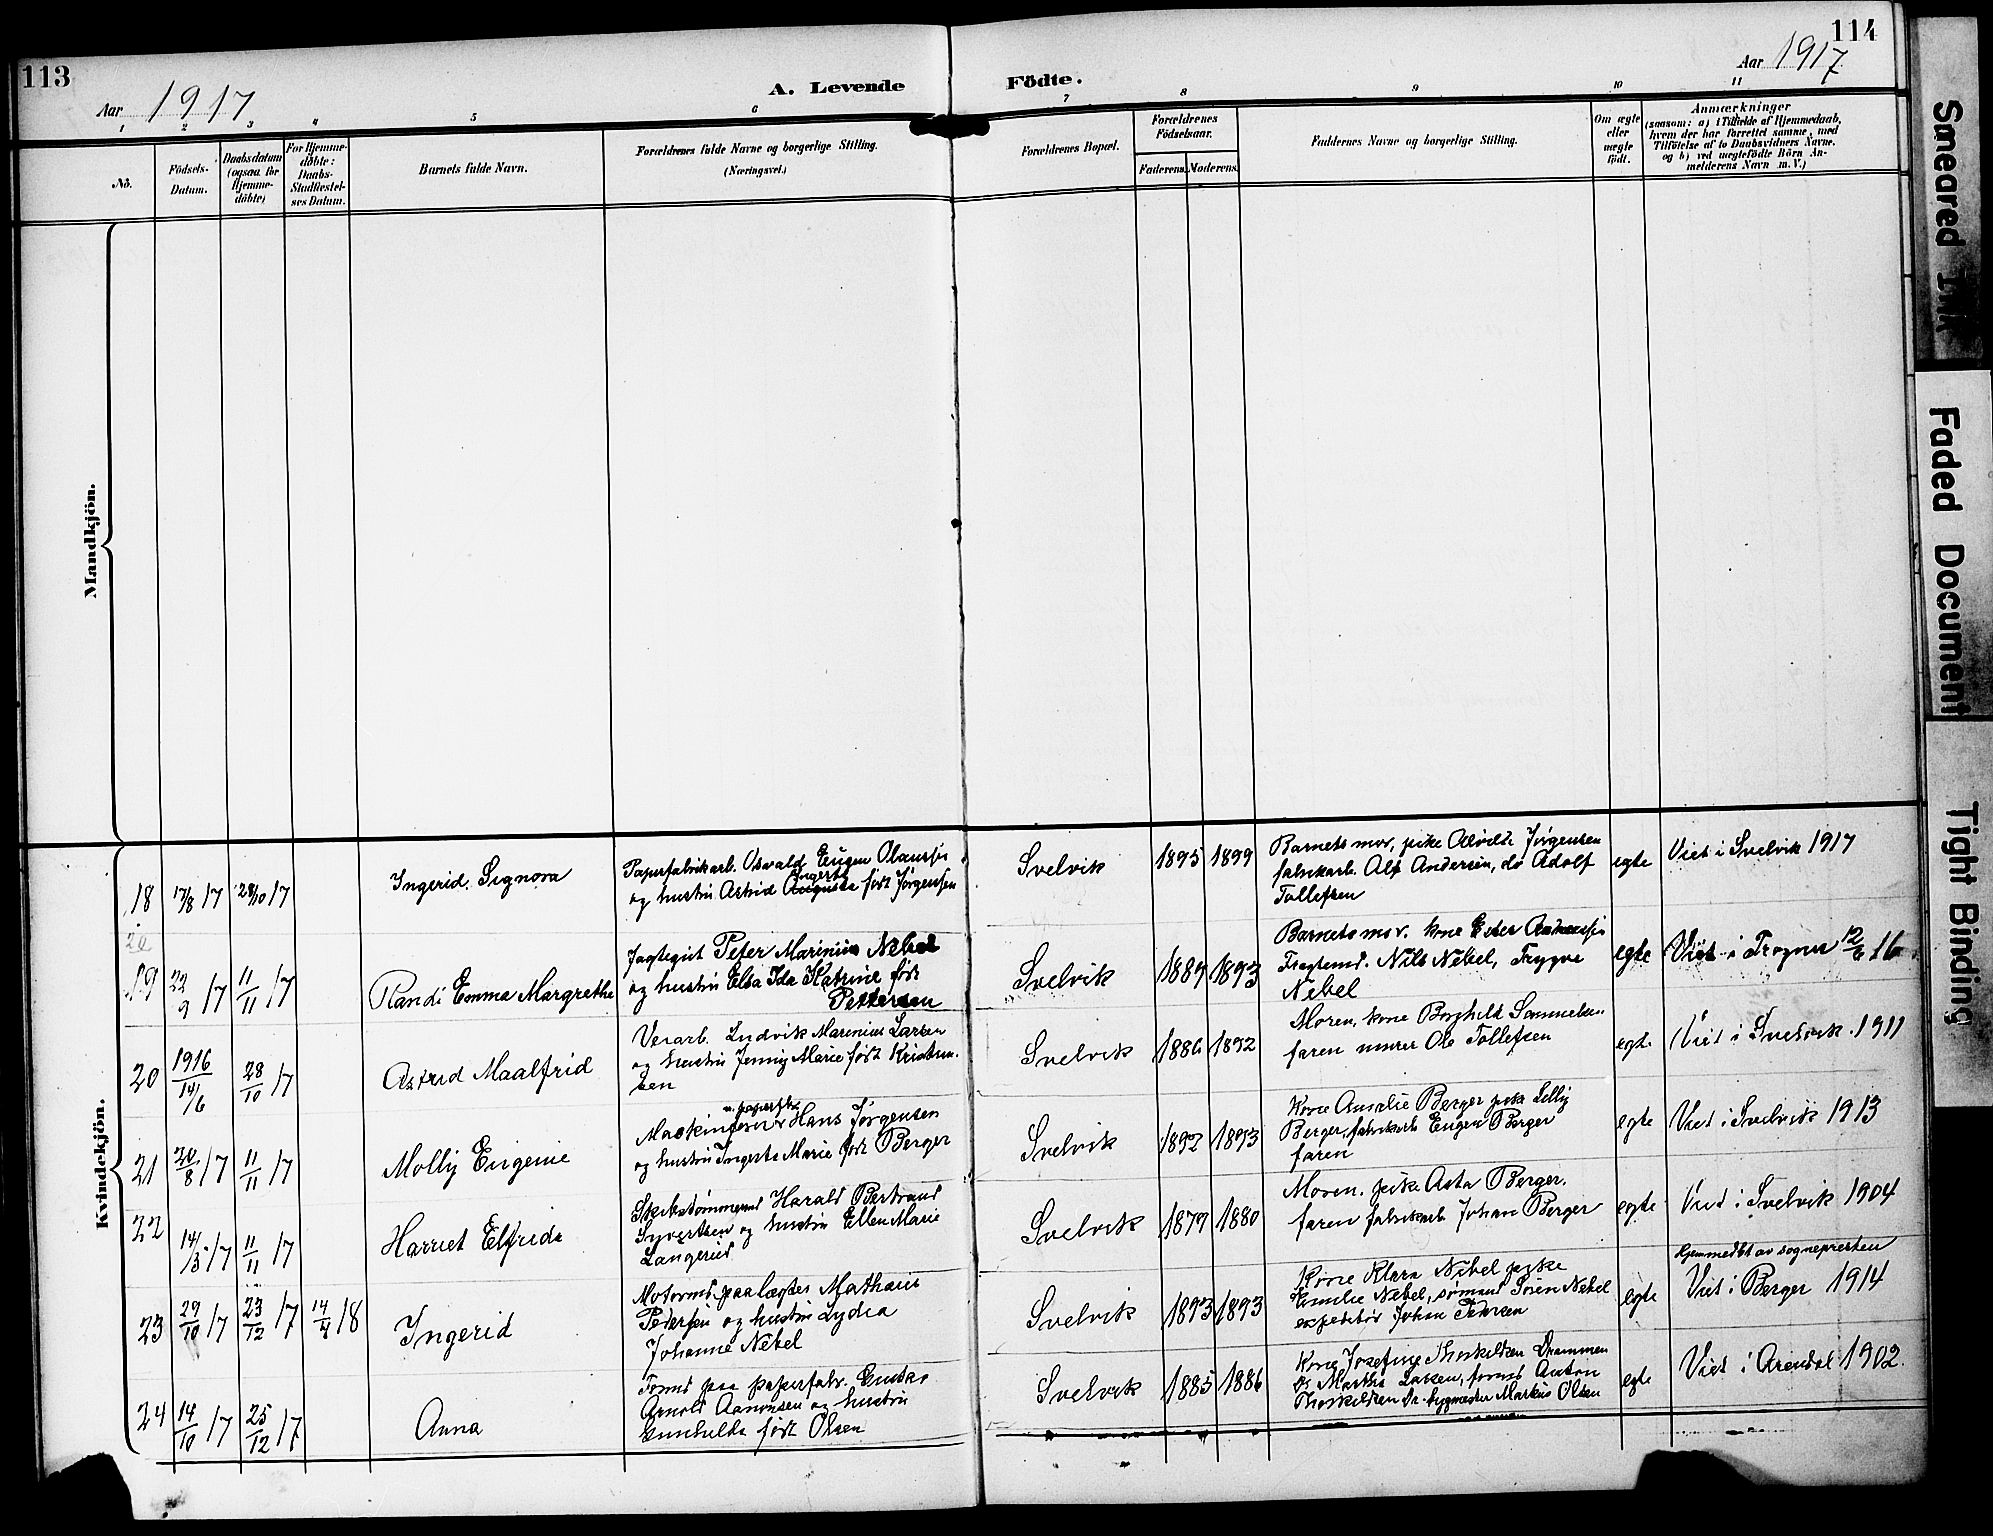 113
114
Aar 1917
A. Levende Födte.
Aar 1917
1 2 3 4 5 6 7 8 9 10 11
No.
Födsels-
Datum.
Daabsdatum
(ogsaa for
Hjemme-
döbte)
For Hjemme-
döbte:
Daabs-
Stadfæstel-
ses Datum.
Barnets fulde Navn.
Forældrenes fulde Navne og borgerlige Stilling.
(Næringsvei.)
Forældrenes Bopæl.
Forældrenes
Födselsaar.
Faderens.
Moderens.
Faddernes Navne og borgerlige Stilling.
Om ægte
eller
uægte
födt.
Anmærkninger
(saasom: a) i Tilfælde af Hjemmedaab,
hvem der har forrettet samme, med
Tilföielse af to Daabsvidners Navne.
og b) ved uægtefödte Börn An-
melderens Navn m. V.)
Mandkjön.
Kvindekjön.
18
17/8 17
28/10 17
Ingerid Signora
Papirfabrikarb. Osvald Eugen Olaussen
Ingerta
og hustru Astrid Augusta født Jørgensen
Svelvik
1895
1899
Barnets mor, pike Alvilde Jørgensen
fabrikarb. Alf Andersen, do Adolf
Tollefsen
egte
Viet i Svelvik 1917
19
22/9 17
11/11 17
Randi Emma Margrethe
Jagtegut Peter Marinius Nebel
og hustru Elsa Ida Katrine født
Pettersen
Svelvik
1889
1893
Barnets mor. kone Ester
Nils Nebel, Trygve
Nebel
egte
Viet i Trogner 12/6 16
20
1916
14/6
28/10 17
Astrid Maalfrid
Verarb. Ludvik Marinius Larsen
og hustru Jenny Marie født Kristen-
sen
Svelvik
1886
1892
Moren, kone Borghild Sammelsen
faren murer Ole Tollefsen
egte
Viet i Svelvik 1911
21
20/8 17
11/11 17
Molly Eugenie
Hans Jørgensen
og hustru Ingerta Marie født Berger
Svelvik
1892
1893
Kone Amalie Berger pike Lilly
Berger, fabrikarb Eugen Berger
faren
egte
Viet i Svelvik 1913
22
14/5 17
11/11 17
Harriet Elfrida
Skibstømmermd Harald Bertrand
Syvertsen og hustru Ellen Marie
Langerud
Svelvik
1879
1880
Moren. pike Asta Berger.
faren fabrikarb Johan Berger
egte
Viet i Svelvik 1904
23
29/10 17
23/12 17
14/4 18
Ingerid
Motormd. paa Mathæus
Pedersen og hustru Lydia
Johanne Nebel
Svelvik
1893
1893
Kone Klara Nebel pike
Emilie Nebel, sømand Sören Nebel
expeditør Johan Pedersen
egte
Hjemmedbt av sognepresten
Viet i Berger 1914
24
14/10 17
25/12 17
Anna
Formd paa papirfabr. Gustav
Arnold Aanonsen og hustru
Gunhilda født Olsen
Svelvik
1885
1886
Kone Josefine Thorkildsen Drammen
Do Martha Larsen, formd Anton
Thorkildsen Dr. bygmester Markus Olsen
egte
Viet i Arendal 1902.
Smeared Ink
Faded Document
Tight Binding